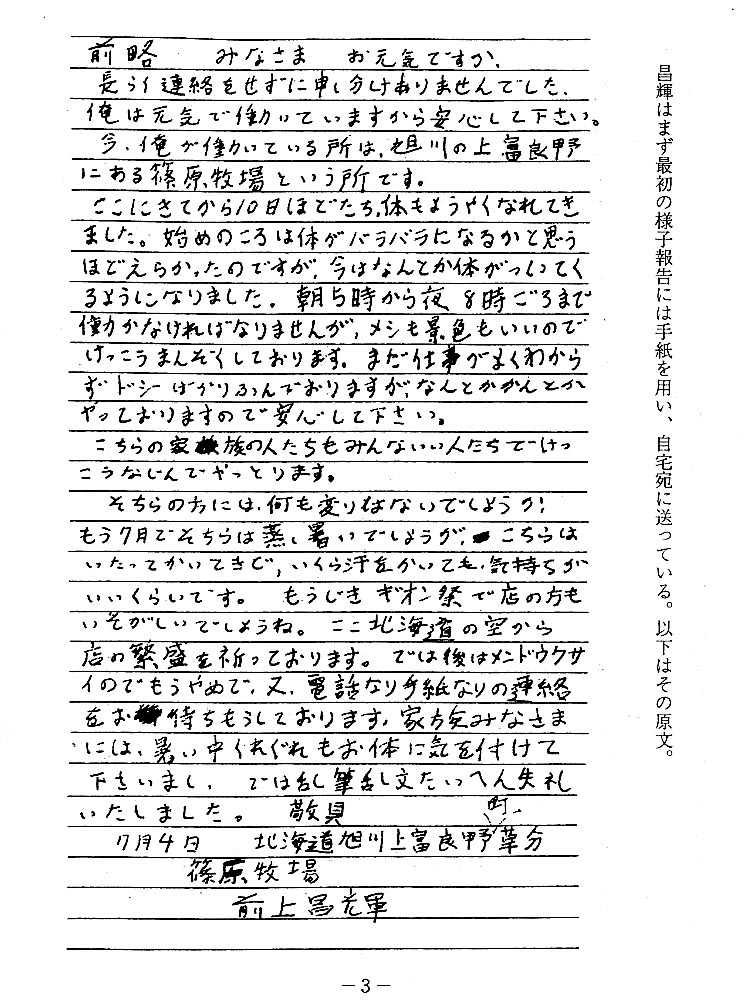 昌輝はまず最初の様子報告には手紙を用い、自宅宛に送っている。以下はその原文。
前略 みなさま お元気ですか、
長らく連絡をせずに申し分けありませんでした、
俺は元気で働いていますから安心して下さい。
今、俺が働いている所は、旭川の上富良野
にある篠原牧場という所です。
ここにきてから10日ほどたち、体もようやくなれてき
ました。始めのころは体がバラバラになるかと思う
ほどえらかったのですが、今はなんとか体がついてく
るようになりました。朝5時から夜8時ごろまで
働かなければなりませんが、メシも景色もいいので
けっこうまんぞくしております。まだ仕事がよくわから
ずドジばかりふんでおりますが、なんとかかんとか
やっておりますので安心して下さい。
こちらの家族の人たちもみんないい人たちでけっ
こうなじんでやっとります。
そちらの方には、何も変りはないでしょうか!
もう7月でそちらは蒸し暑いでしょうが、こちらは
いたってかいてきで、いくら汗をかいても、気持ちが
いいくらいです。 もうじきギオン祭で店の方も
いそがしいでしょうね。ここ北海道の空から
店の繁盛を祈っております。では後はメンドウクサ
イのでもうやめで、又、電話なり手紙なりの連絡
をお待ちもうしております、家方々みなさま
には、暑い中くれぐれもお体に気を付けて
下さいまし、 では乱筆乱文たいへん失礼
いたしました。 敬具
7月4日 北海道旭川上富良野町草分
篠原牧場
前上昌輝
-3-